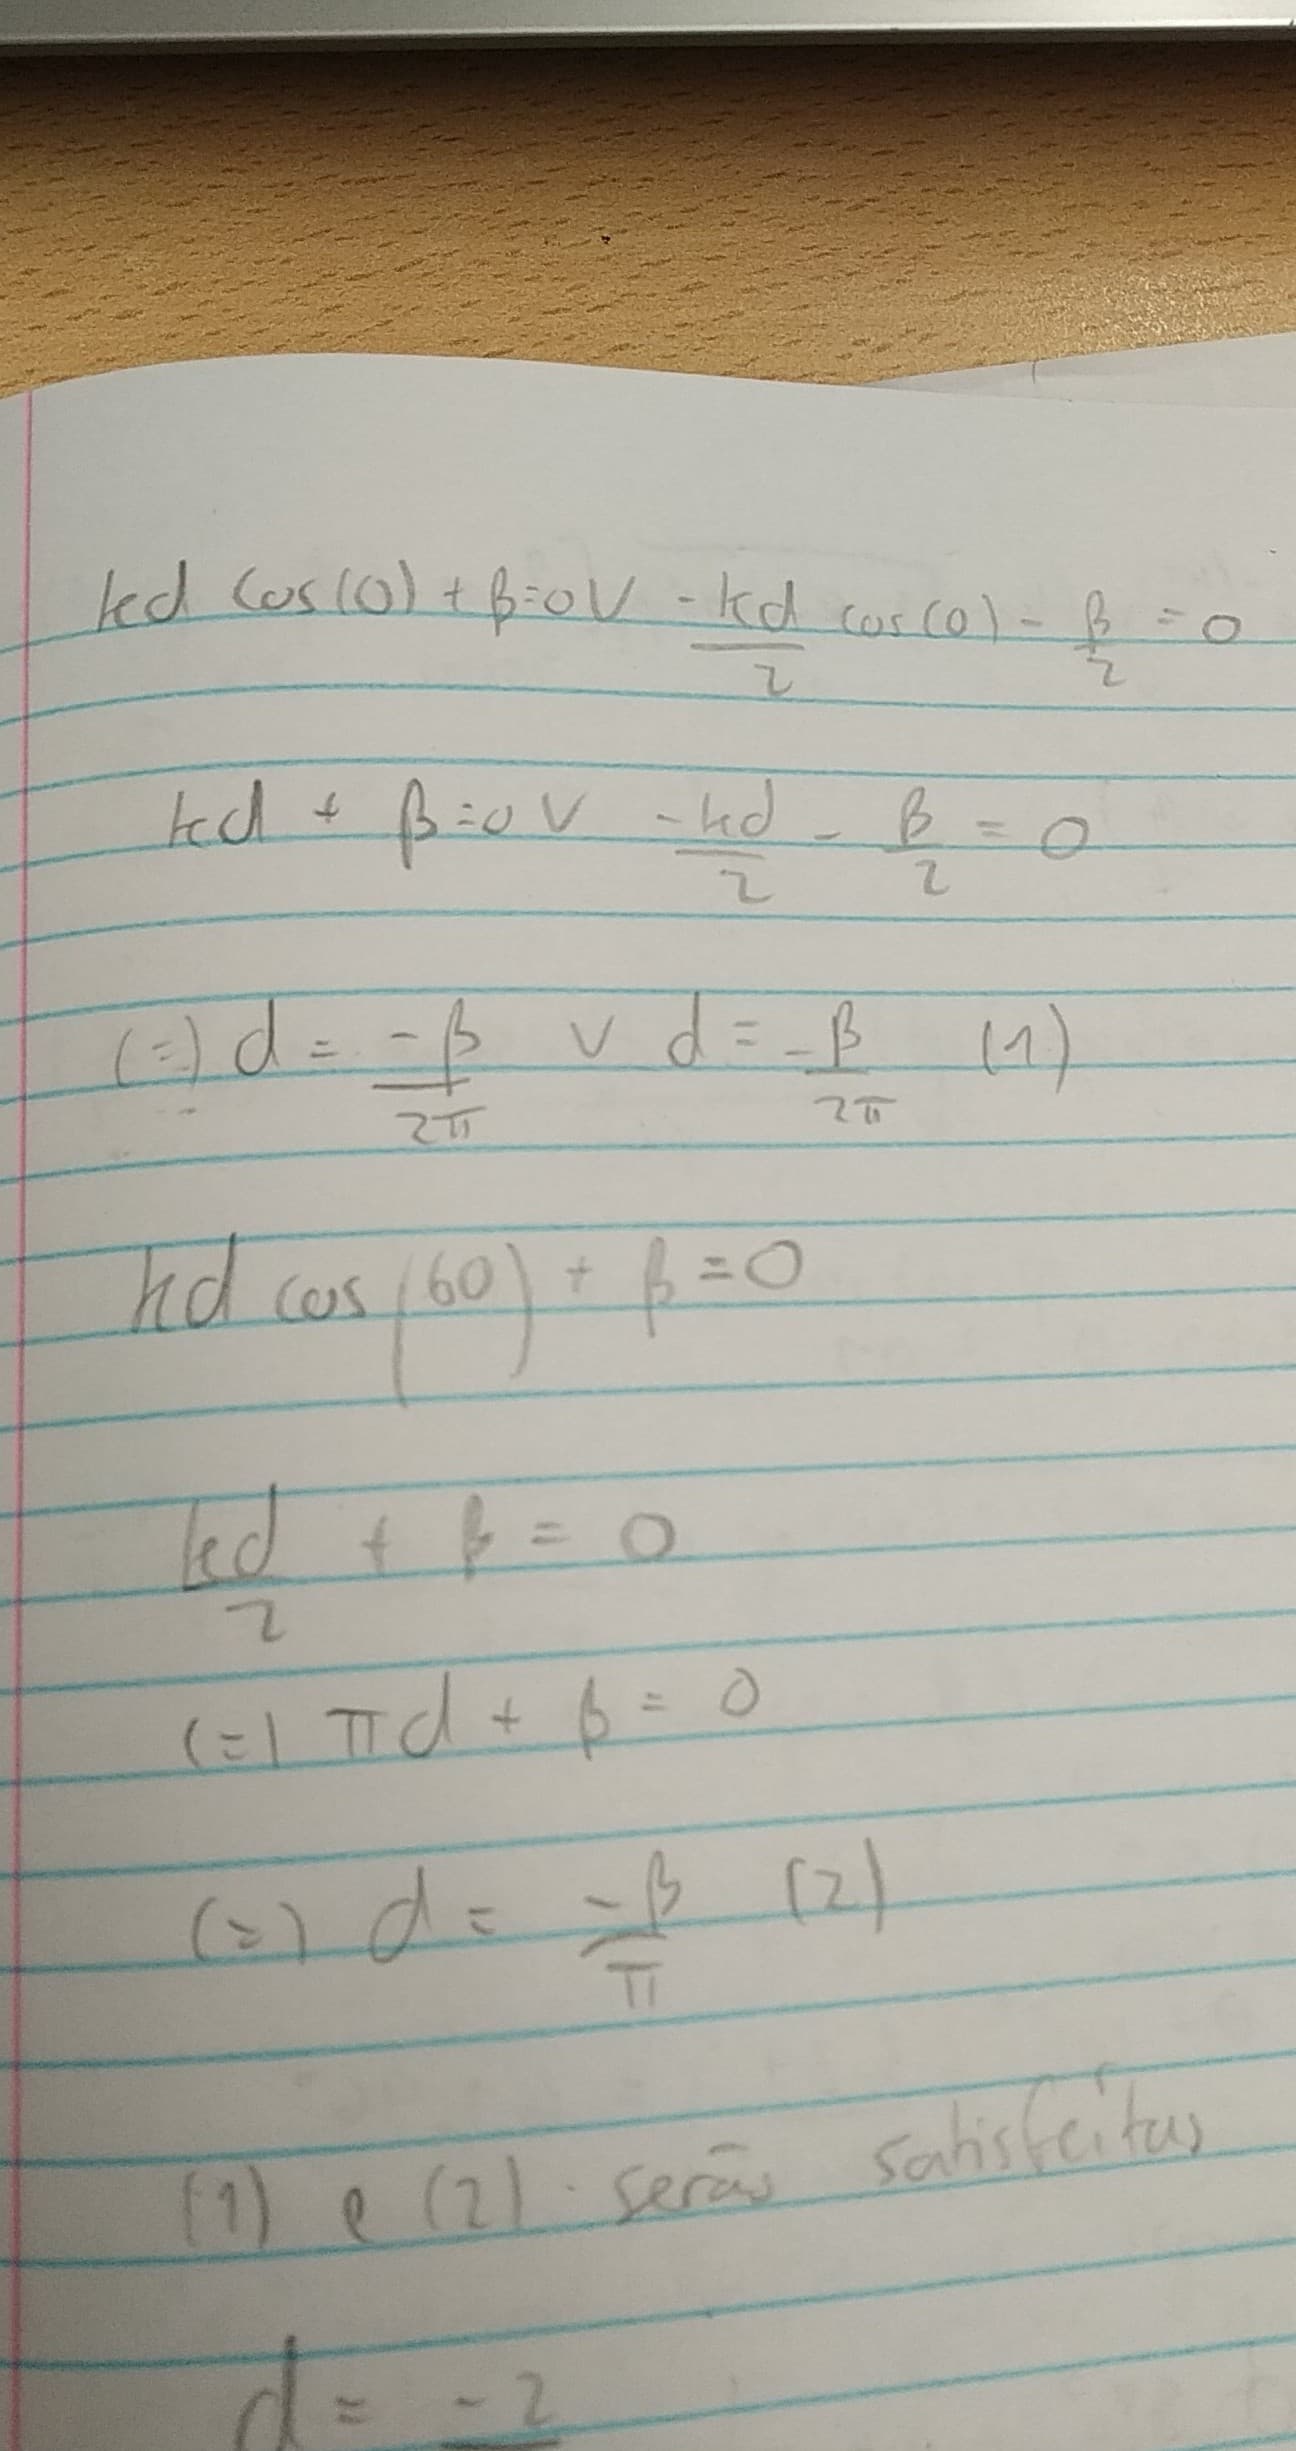 kd cos(0) + β=0 V -kd/2 cos(0) - β/2 = 0
kd + β=0 V -kd/2 - β/2 = 0
(=) d = -β/2π V d = -β/2π (1)
kd cos(60) + β = 0
kd/2 + β = 0
(=) πd + β = 0
(=) d = -β/π (2)
(1) e (2) serão satisfeitas
d = -2